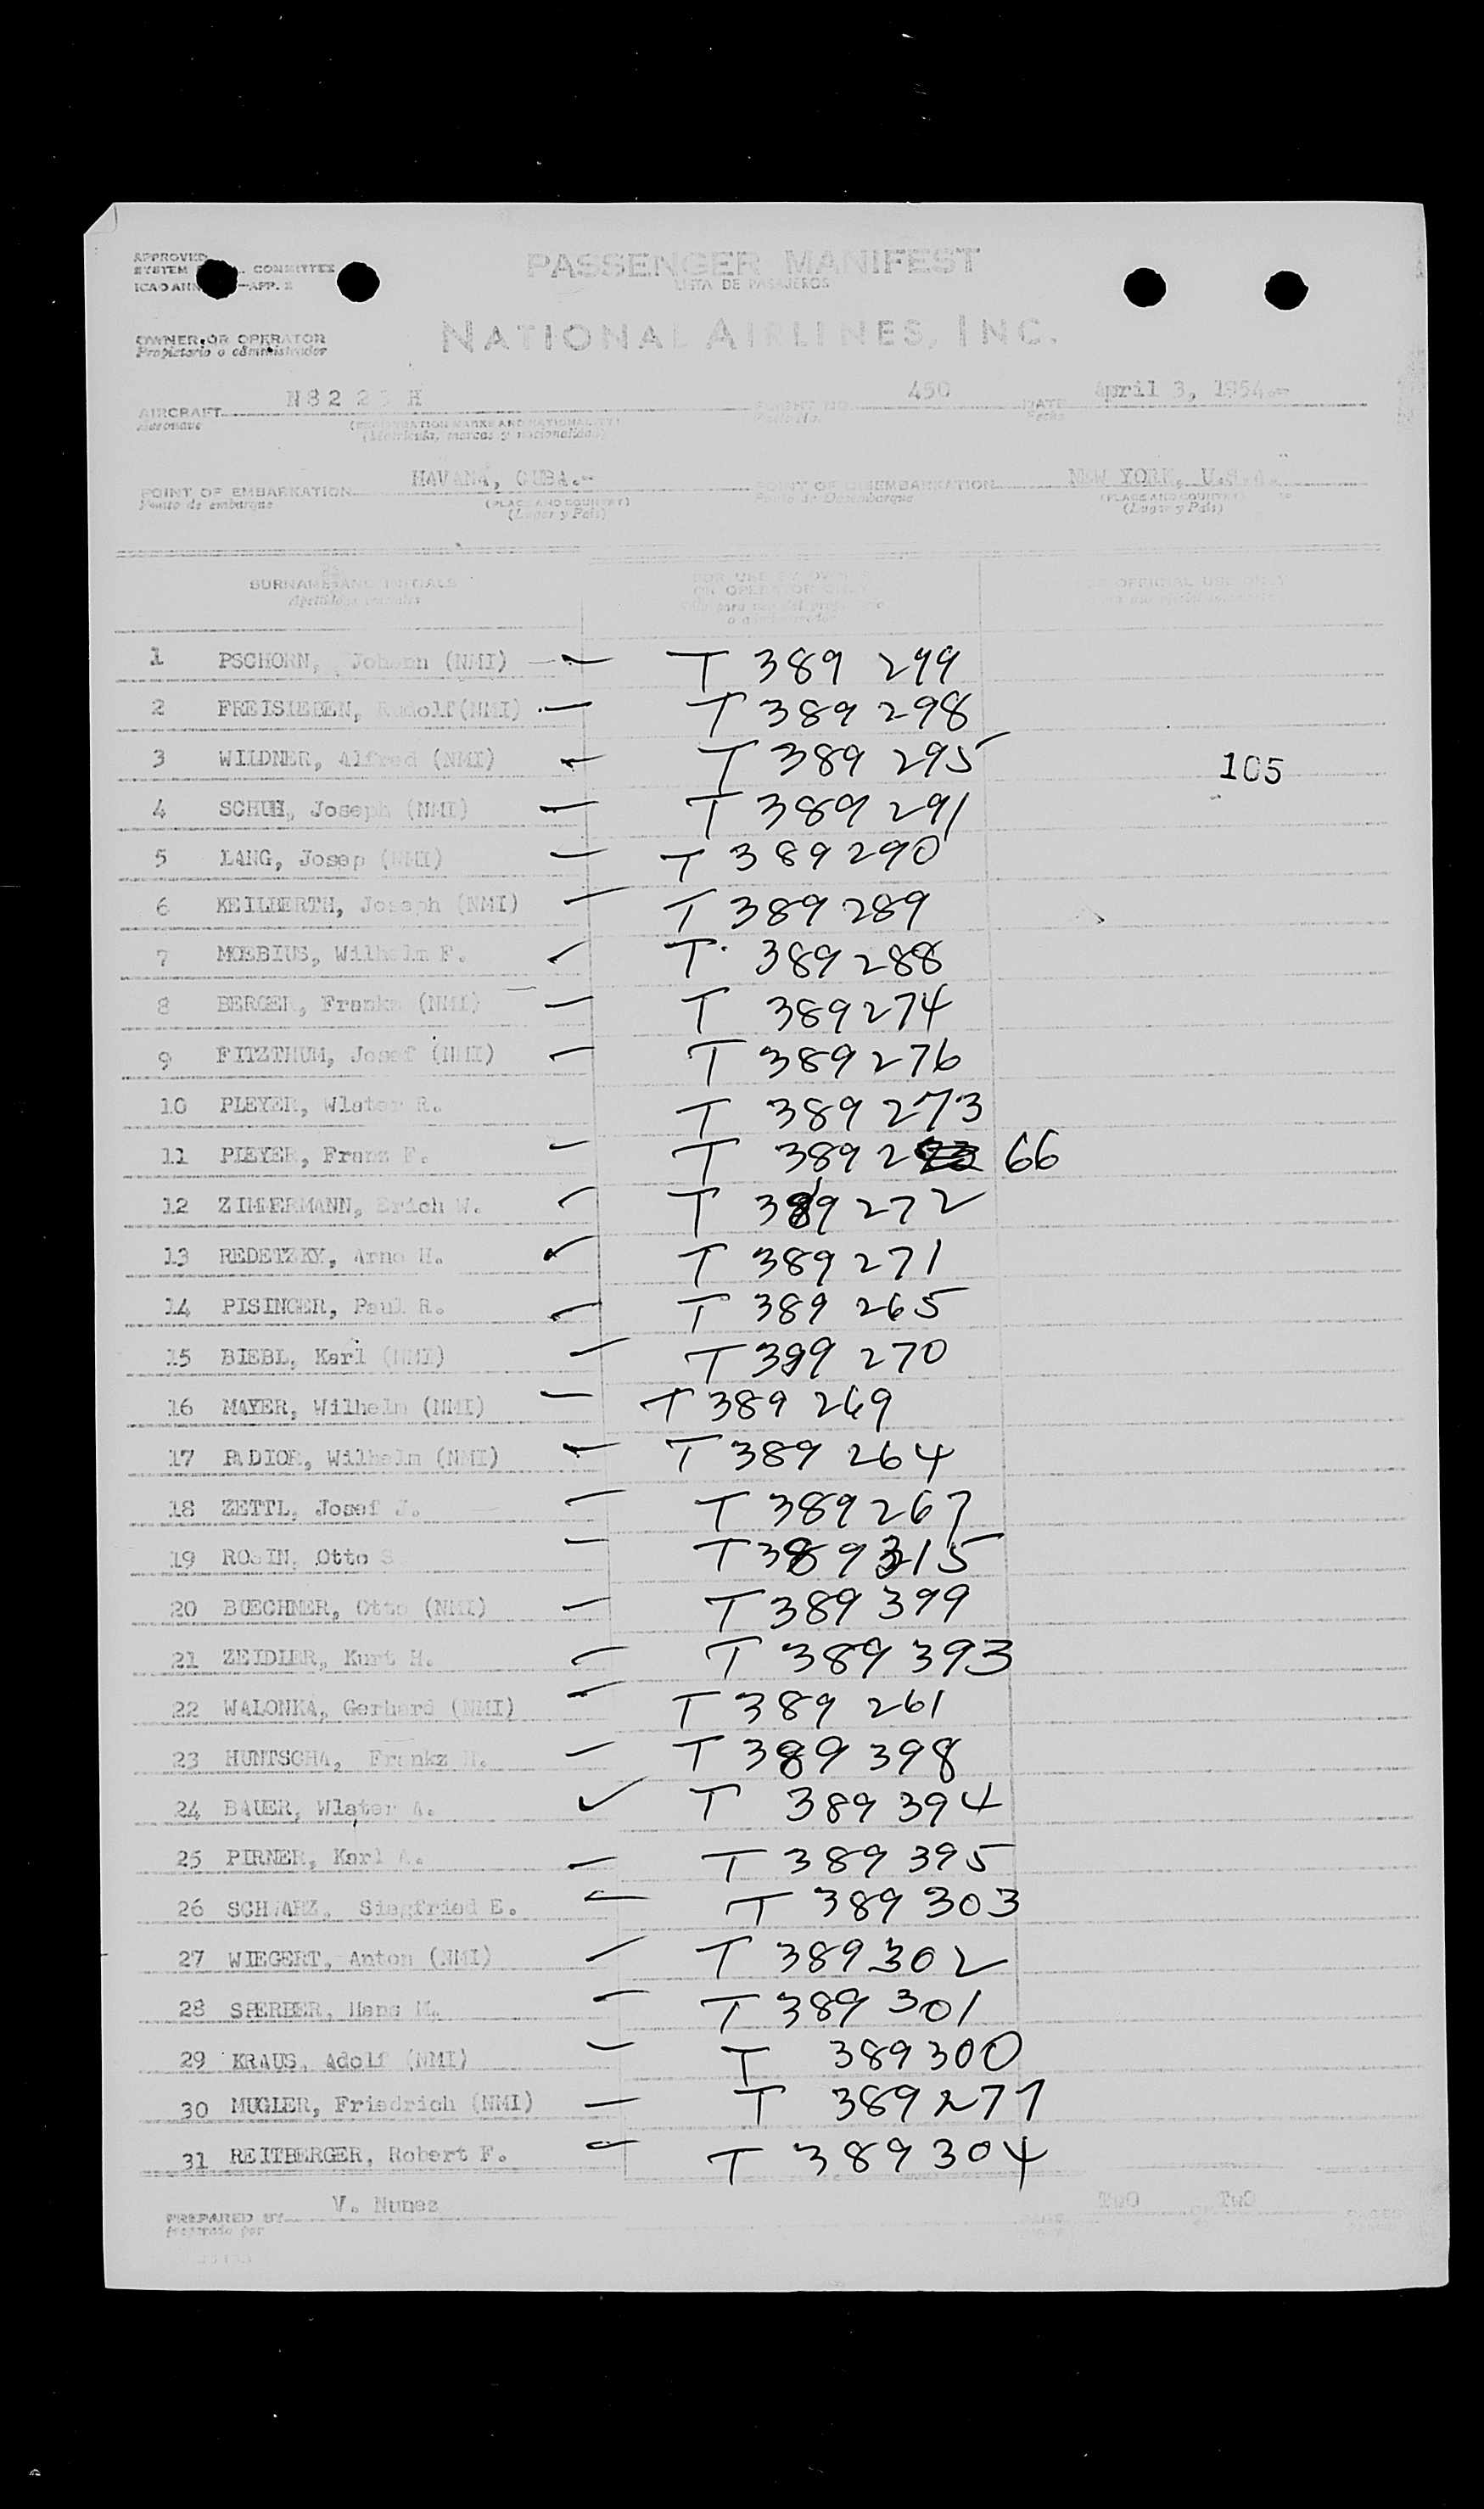 APPROVED PASSENGER MANIFEST
SYSTEM COMMITTEE LISTA DE PASAJEROS
ICAO ANN —APP. 2
OWNER OR OPERATOR NATIONAL AIRLINES, INC.
Propietario o administrador
AIRCRAFT N8225 H 450 DATE April 3, 1954.-
Aeronave (REGISTRATION MARKS AND NATIONALITY) Fecha
(Matricula, marcas y nacionalidad)
POINT OF EMBARKATION HAVANA, CUBA.- POINT OF DISEMBARKATION NEW YORK, U.S.A.
Punto de embarque (PLACE AND COUNTRY) Punto de Desembarque (PLACE AND COUNTRY)
(Lugar y Pais) (Lugar y Pais)
SURNAME AND INITIALS FOR USE BY OWNER OR OPERATOR ONLY OFFICIAL USE ONLY
1 PSCHORN, Johann (NMI) — T 389 299
2 FREISLEBEN, Rudolf(NMI) — T 389 298
3 WILDNER, Alfred (NMI) — T 389 295 105
4 SCHUH, Joseph (NMI) — T 389 291
5 LANG, Josep (NMI) — T 389290
6 KEILBERTH, Joseph (NMI) — T 389289
7 MOEBIUS, Wilhelm F. ✓ T 389288
8 BERGER, Frankz (NMI) — T 389274
9 FITZTHUM, Josef (NMI) — T 389276
10 PLEYER, Wlater R. T 389273
11 PLEYER, Franz F. — T 3892 66
12 ZIMMERMANN, Erich W. — T 389272
13 REDETZKY, Arno H. ✓ T 389271
14 PISINGER, Paul R. — T 389 265
15 BIEBL, Karl (NMI) — T 389 270
16 MAYER, Wilhelm (NMI) — T 389 269
17 PADIOR, Wilhelm (NMI) — T 389 264
18 ZETTL, Josef J. — T 389267
19 ROSIN, Otto S — T 389315
20 BUECHNER, Otto (NMI) — T 389 399
21 ZEIDLER, Kurt H. — T 389 393
22 WALONKA, Gerhard (NMI) — T 389 261
23 HUNTSCHA, Frankz H. — T 389 398
24 BAUER, Wlater A. ✓ T 389394
25 PIRNER, Karl A. — T 389 395
26 SCHWARZ, Siegfried E. — T 389 303
27 WIEGERT, Anton (NMI) — T 389302
28 SPERBER, Hans M. — T 389 301
29 KRAUS, Adolf (NMI) — T 389300
30 MUGLER, Friedrich (NMI) — T 389277
31 REITBERGER, Robert F. — T 389304
PREPARED BY V. Nunez PAGE TwO OF TwO PAGES
Preparado por